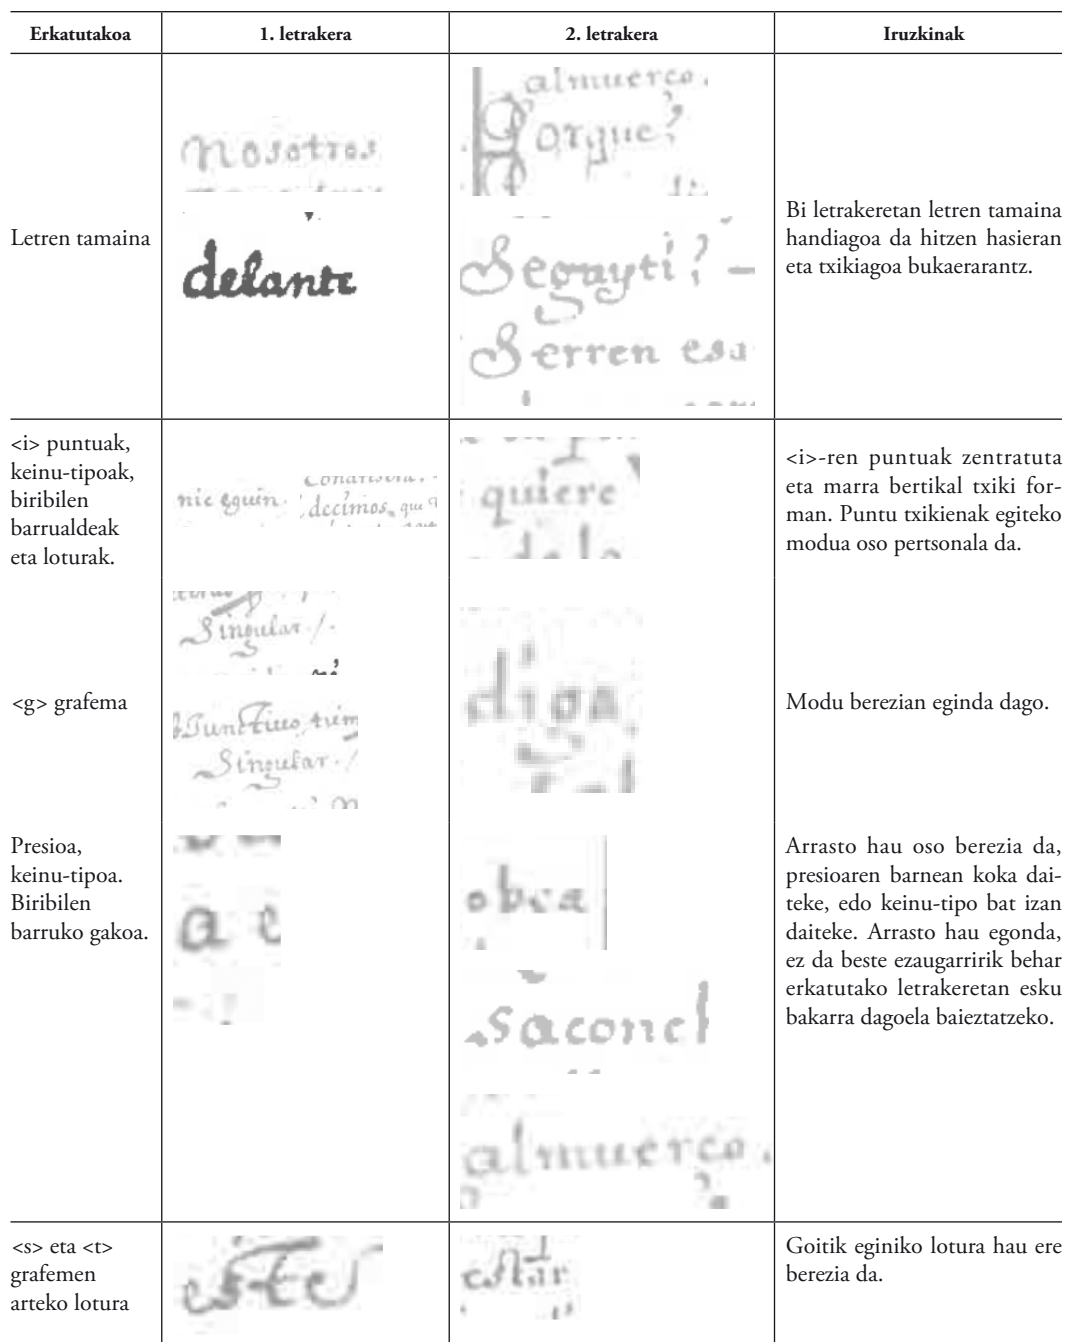 Erkatutakoa 1. letrakera 2. letrakera Iruzkinak
Letren tamaina
Nosotros
delante
almuerço.
Porque?
Segayti? –
Serren esa
Bi letrakeretan letren tamaina
handiagoa da hitzen hasieran
eta txikiagoa bukaerarantz.
<i> puntuak,
keinu-tipoak,
biribilen
barrualdeak
eta loturak.
nic eguin.
decimos, que
quiere
<i>-ren puntuak zentratuta
eta marra bertikal txiki for-
man. Puntu txikienak egiteko
modua oso pertsonala da.
<g> grafema
Singular /.
Singular. /
diga
Modu berezian eginda dago.
Presioa,
keinu-tipoa.
Biribilen
barruko gakoa.
a e
obea
saconel
almuerço.
Arrasto hau oso berezia da,
presioaren barnean koka dai-
teke, edo keinu-tipo bat izan
daiteke. Arrasto hau egonda,
ez da beste ezaugarririk behar
erkatutako letrakeretan esku
bakarra dagoela baieztatzeko.
<s> eta <t>
grafemen
arteko lotura
este
estar
Goitik eginiko lotura hau ere
berezia da.